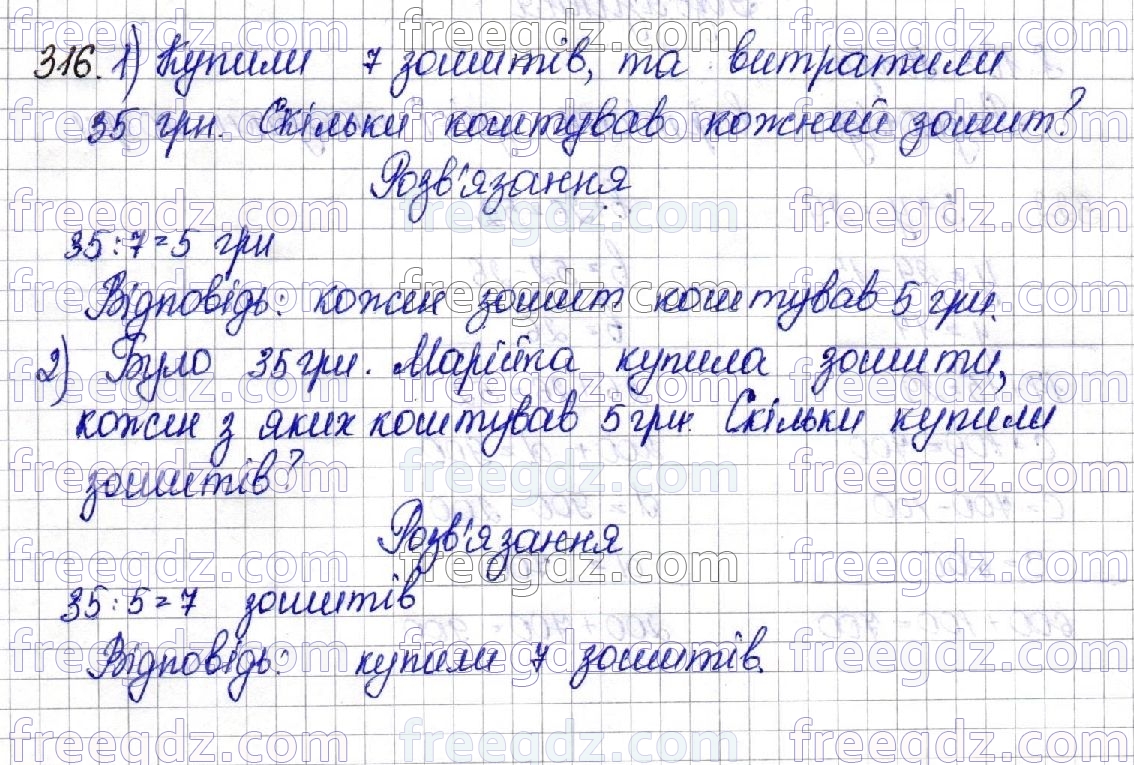 316. 1) Купили 7 зошитів, та витратили
35 грн. Скільки коштував кожний зошит?
Розв'язання
35:7=5 грн
Відповідь: кожен зошит коштував 5 грн.
2) Було 35 грн. Марійка купила зошити,
кожен з яких коштував 5 грн. Скільки купили
зошитів?
Розв'язання
35:5=7 зошитів
Відповідь: купили 7 зошитів.
freegdz.com